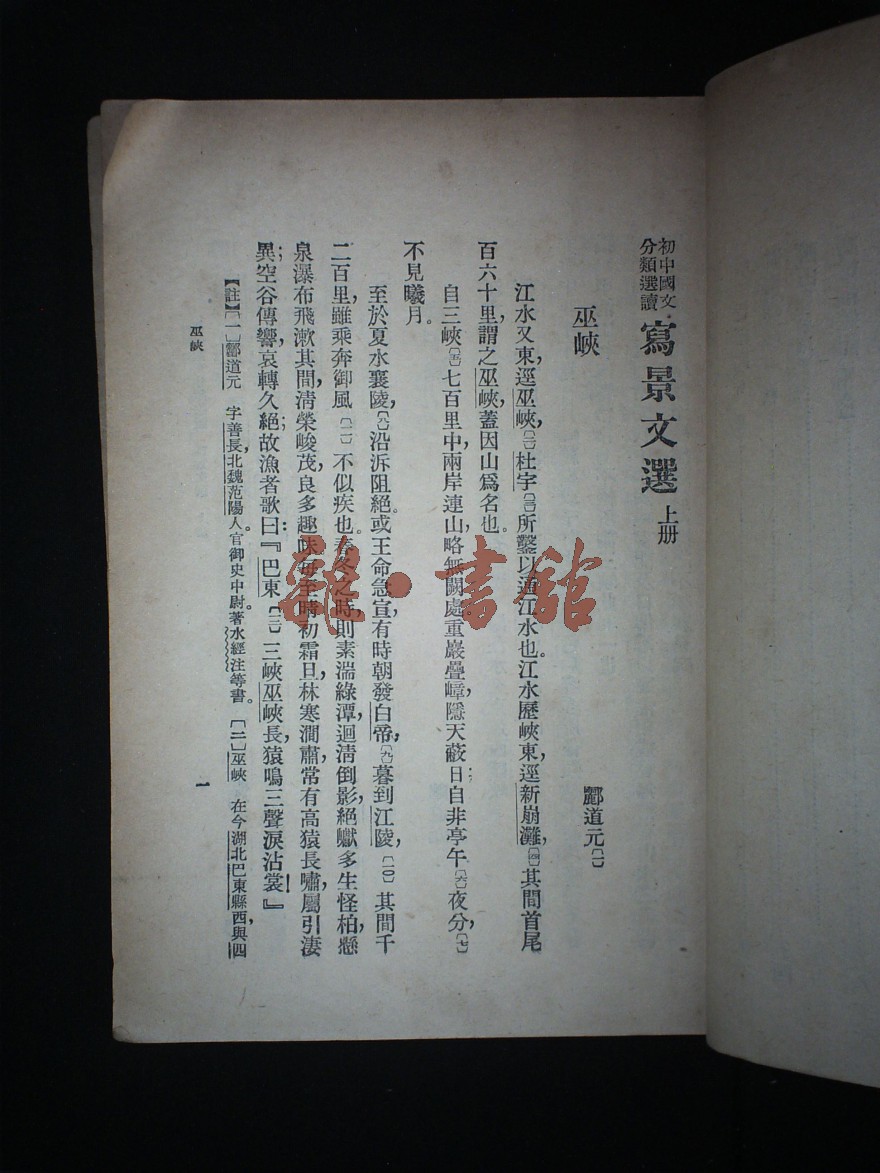 初中國文
分類選讀
寫景文選 上册
巫峽
酈道元〔一〕
江水又東，逕巫峽，〔二〕杜宇〔三〕所鑿以通江水也。江水歷峽東，逕新崩灘，〔四〕其間首尾
百六十里，謂之巫峽，蓋因山爲名也。
自三峽〔五〕七百里中，兩岸連山，略無闕處；重巖疊嶂，隱天蔽日；自非亭午〔六〕夜分，〔七〕
不見曦月。
至於夏水襄陵，〔八〕沿泝阻絕。或王命急宣，有時朝發白帝，〔九〕暮到江陵，〔一〇〕其間千
二百里，雖乘奔御風〔一一〕不似疾也。春冬之時，則素湍綠潭，迴淸倒影。絕巘多生怪柏，懸
泉瀑布，飛漱其間，淸榮峻茂，良多趣味。每至晴初霜旦，林寒澗肅，常有高猿長嘯，屬引淒
異；空谷傳響，哀轉久絕；故漁者歌曰：『巴東〔一二〕三峽巫峽長，猿鳴三聲淚沾裳！』
【註】〔一〕酈道元 字善長，北魏范陽人。官御史中尉。著水經注等書。 〔二〕巫峽 在今湖北巴東縣西，與四
巫峽
一
龍·書舘